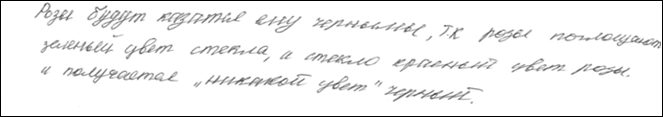 Розы будут казатся ему черными, т.к розы поглощают
зеленый цвет стекла, а стекло красный цвет розы.
и получается „никакой цвет" черный.